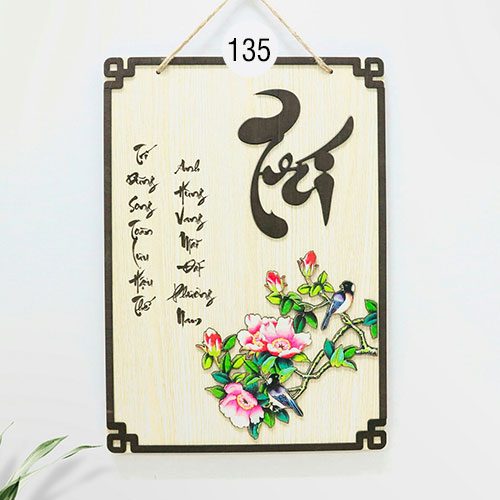 135
Trí
Trí Dũng Song Toàn Lưu Hậu Thế
Anh Hùng Vang Mãi Đất Phương Nam